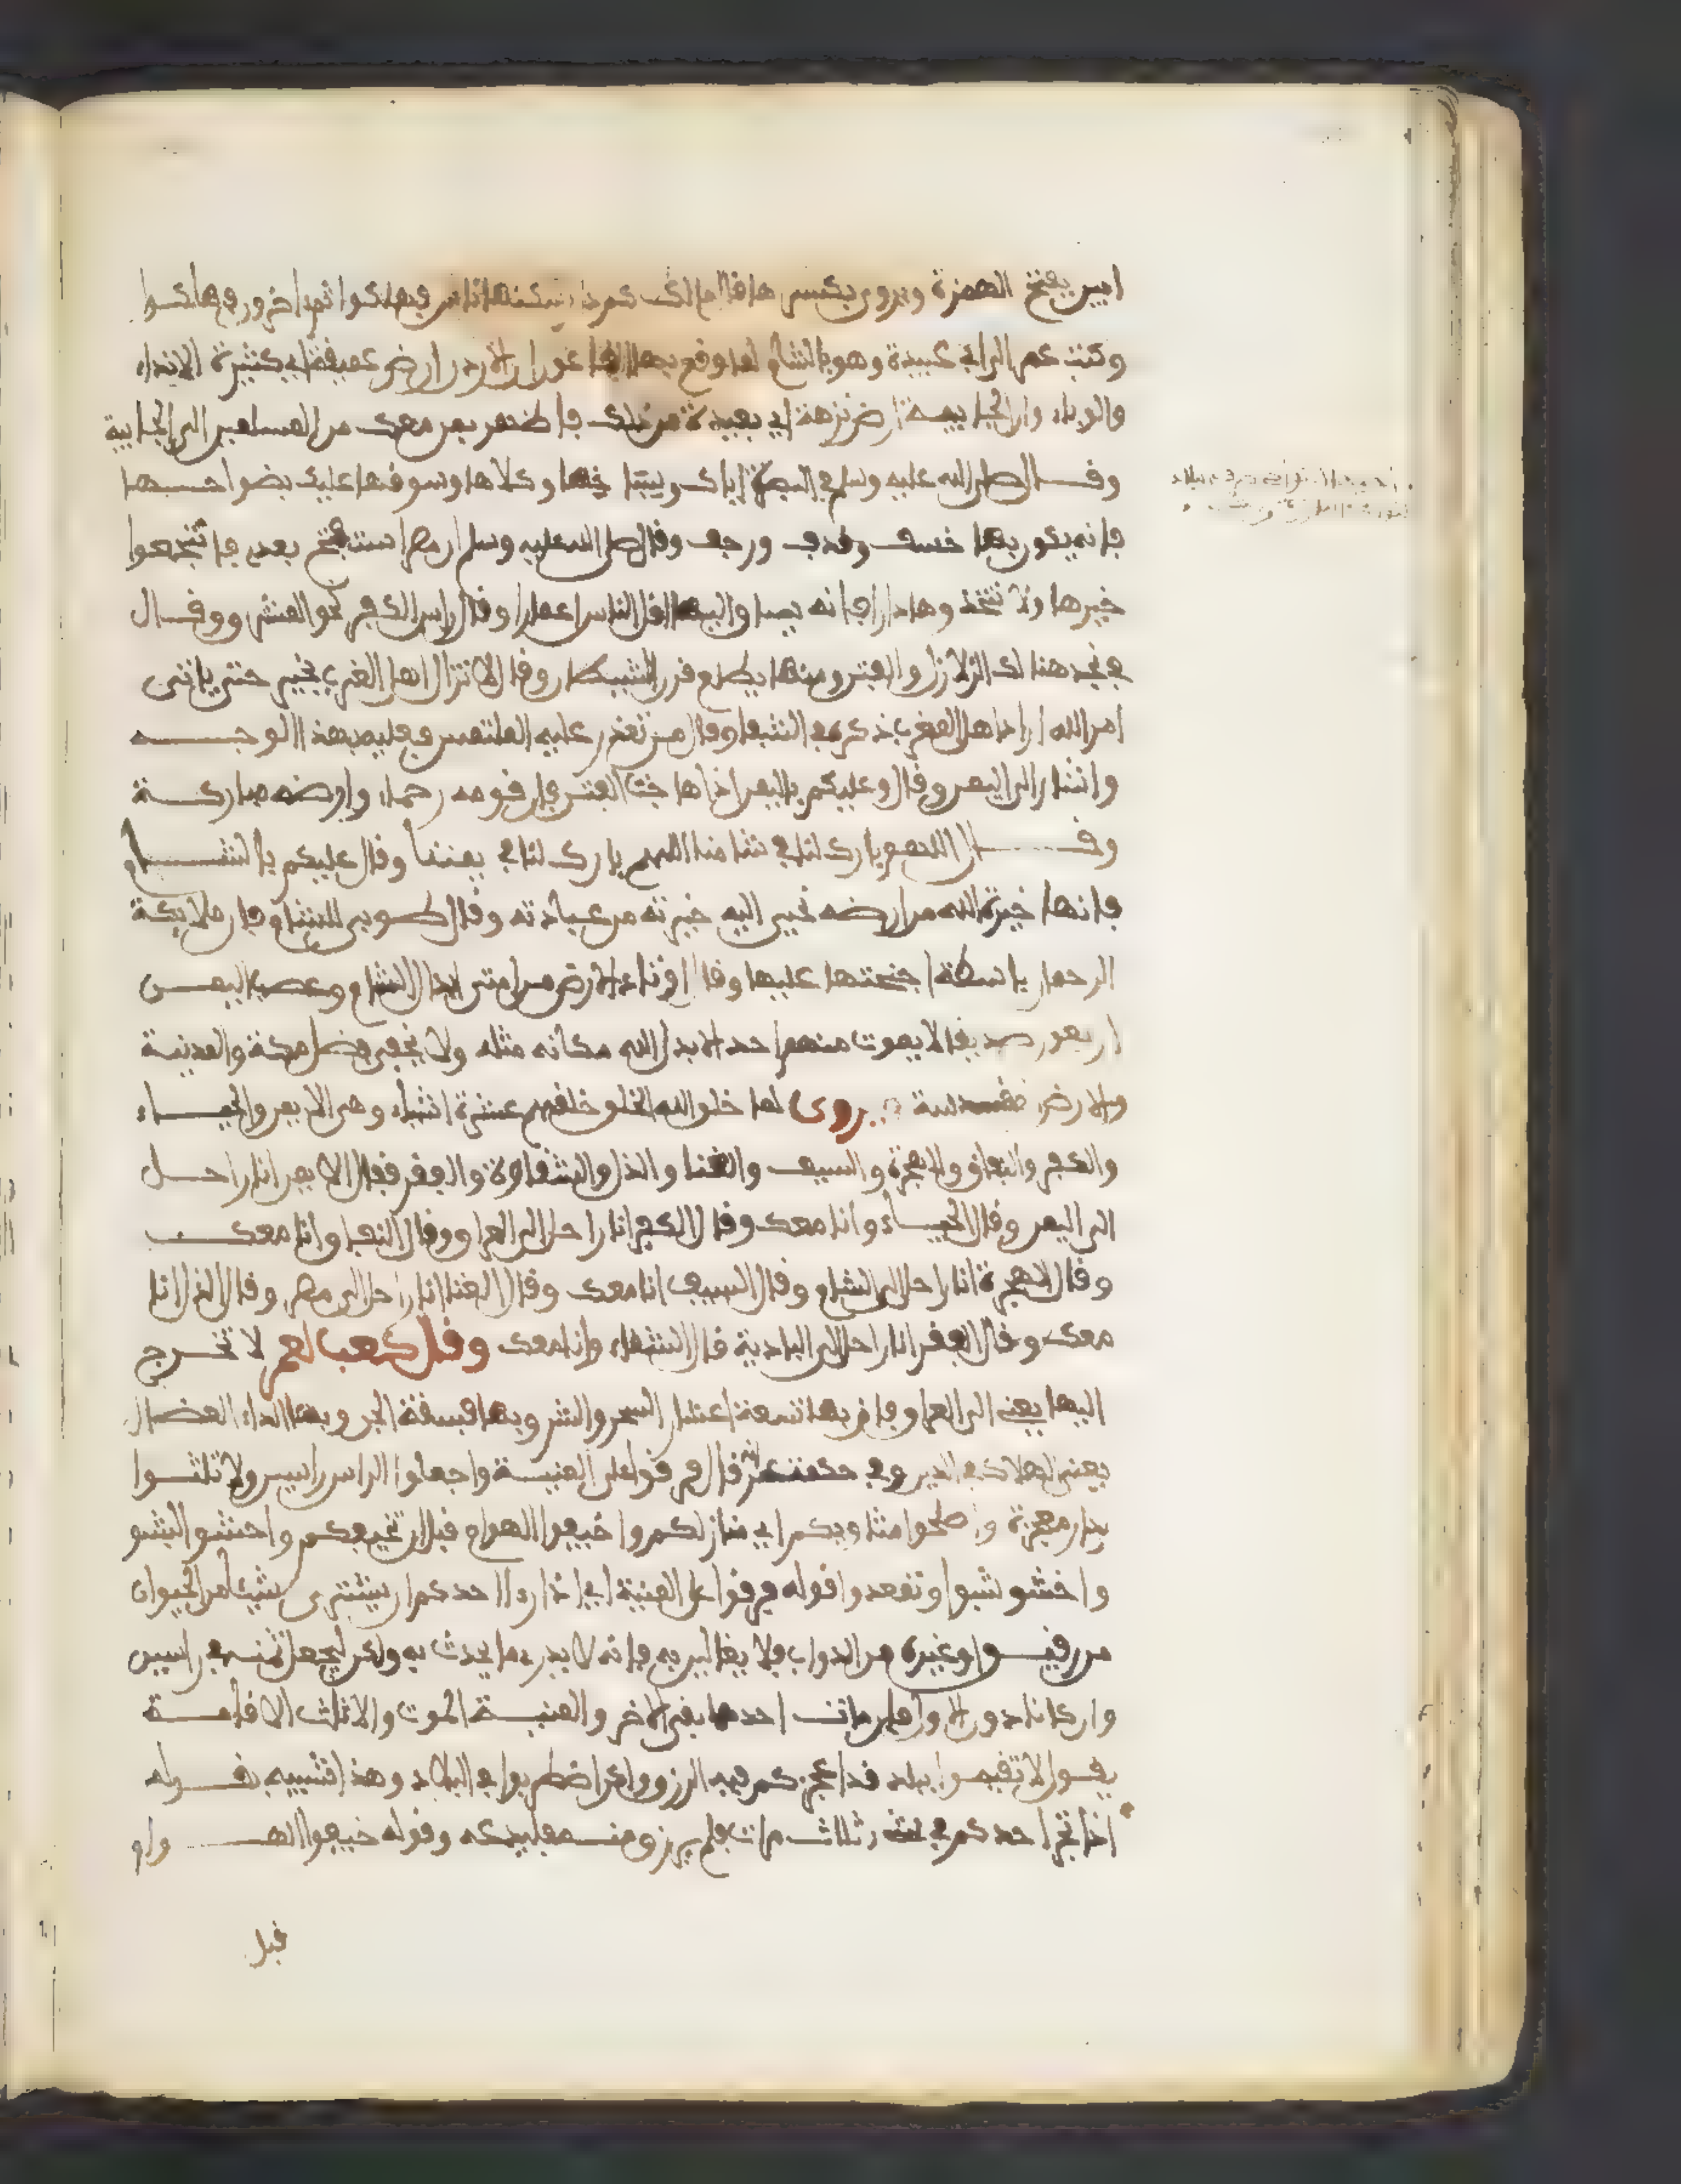 ابين بفتح الهمزة ويروى بكسرها قال مالك كم من دار سكنها ناس فهلكوا ثم اخرون فهلكوا
وكتب عمر الى ابي عبيدة وهو بالشام لما وقع بها الوبا ان الاردن ارض عميقة اي كثيرة الانداء
والوباء وان الجابيـة ارض نزهة اي بعيدة من ذلك فاظهر بمن معك من المسلمين الى الجابية
وقـــال صلى الله عليه وسلم في البصرة اياك وسباخها وكلاها وسوقها وعليك بضواحيـها
فانه يكون بها خسف وقذف ورجف وقال صلى الله عليه وسلم ان مصر ستفتح بعدي فانتجعوا
خيرها ولا تتخذوها دارا فانه يساق اليها اقل الناس اعمارا وقال راس الكفر نحو المشرق وقـــال
في نجد هناك الزلازل والفتن ومنها يطلع قرن الشيطان وقال لا تزال اهل الغرب بخير حتى ياتي
امر الله اراد اهل المغرب ذكره في الشفا وقال من تعذر عليه الملتمس فعليه بهذا الوجـــه
واشار الى اليمن وقال وعليكم باليمن اذا هاجت الفتن فان قومه رحماء وارضه مباركـــة
وقــــال اللهم بارك لنا في شامنا اللهم بارك لنا في يمننا وقال عليكم بالشـــام
فانها خيرة الله من ارضه يجبي اليه خيرته من عباده وقال طوبى للشام فان ملايكة
الرحمان باسطة اجنحتها عليها وقال اوتاد الارض من امتي ابدال الشام وعصب اليمـــن
اربعون صديقا لا يموت منهم احد الا بدل الله مكانه مثله ولا يخفى فضل مكة والمدينة
والارض المقدسة يروى لما خلق الله الخلق خلق معهم عشرة اشياء وهي الايمن والحيـــاء
والكفر والنفاق والهجرة والسيف والغنا والذل والشقاوة والفقر فقال الايمن انا راحـــل
الى اليمن وقال الحيـــاء وانا معك وقال الكفر انا راحل الى العراق وقال النفاق وانا معك
وقال الهجرة انا راحل الى الشام وقال السيف انا معك وقال الغنا انا راحل الى مصر وقال الذل انا
معك وقال الفقر انا راحل الى البادية قال الشقاء وانا معك وقال كعب لعمر لا تخـــرج
اليها يعني الى العراق فان بها تسعة اعشار السحر والشر وبها فسقة الجن وبها الداء العضال
يعني الهلاك في الدين وفي حكمة عمر قال فرقوا على المنيـــة واجعلوا الراس راسين ولا تلثـــوا
بدار معجزة واصلحوا مثاويكم اي منازلكم واخيفوا الهوام قبل ان تخيفكم واخشوشنوا
واخشوشبوا وتمعددوا قوله فرقوا على المنية اي اذا اراد احدكم ان يشتري شيئا من الحيوان
من رقيـــق او غيره من الدواب فلا يغالين به فانه لا يدري ما يحدث به ولكن ليجعل ثمنه في راسين
وان كانا دون الاول فان مات احدهما بقي الاخر والمنيـــة الموت والالثاث الاقامـــة
يقـــول لا تقيمـــوا ببلد قد اعجزكم فيه الرزق ولكن اضطربوا في البلاد وهذا شبيه بقـــوله
اذا تجر احدكم في شيء ثلاث مرات فلم يرزق منـــه فليدعه وقوله اخيفوا الهـــوام
قبل